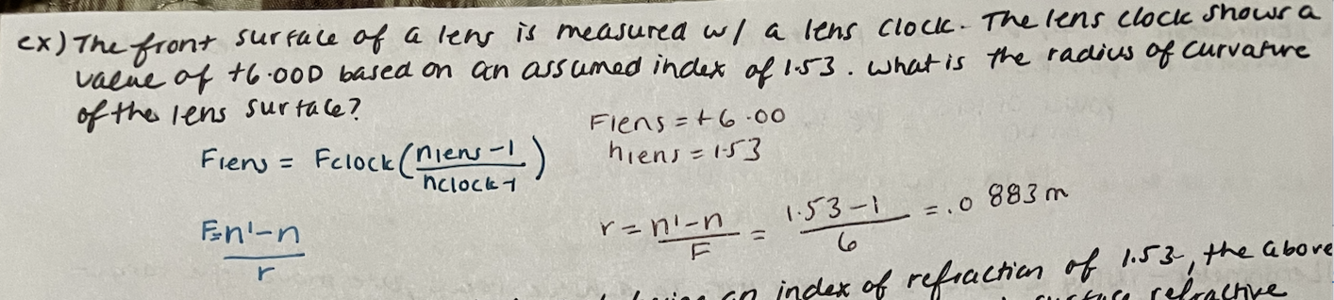 ex) The front surface of a lens is measured w/ a lens clock. The lens clock shows a
value of +6.00D based on an assumed index of 1.53. what is the radius of curvature
of the lens surface?
Flens = +6.00
nlens = 1.53
Flens = Fclock (nlens-1 / nclock-1)
F = n'-n / r
r = n'-n / F = 1.53-1 / 6 = .0883m
an index of refraction of 1.53, the above
surface refractive